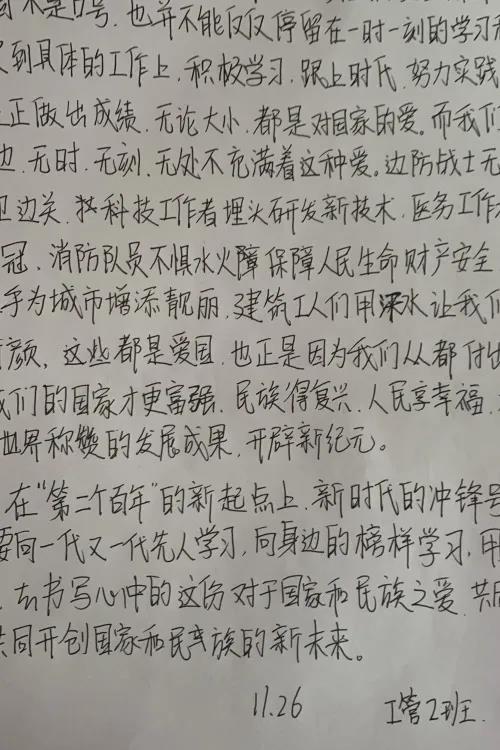 不是口号. 也并不能仅仅停留在一时一刻的学习
到具体的工作上, 积极学习, 跟上时代, 努力实践
正做出成绩. 无论大小, 都是对国家的爱. 而我们
边, 无时, 无刻, 无处不充满着这种爱。边防战士无
卫边关, 科技工作者埋头研发新技术, 医务工作
冠, 消防队员不惧水火障保障人民生命财产安全
手为城市增添靓丽, 建筑工人们用水让我们
颜, 这些都是爱国, 也正是因为我们从都付出
我们的国家才更富强, 民族得复兴, 人民享幸福,
世界称赞的发展成果, 开辟新纪元。
在“第二个百年”的新起点上, 新时代的冲锋号
要向一代又一代先人学习, 向身边的榜样学习, 用
去书写心中的这份对于国家和民族之爱. 共同
共同开创国家和民族的新未来。
11.26 工管2班.